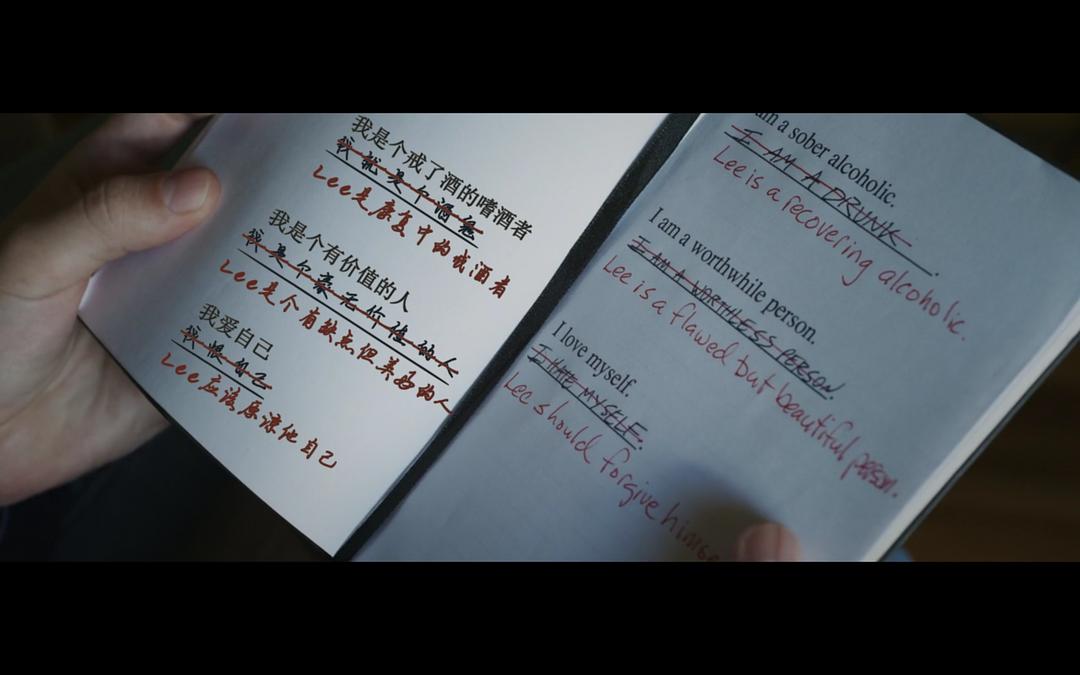 我是个戒了酒的嗜酒者
我就是个酒鬼
Lee是康复中的戒酒者
我是个有价值的人
我是个毫无价值的人
Lee是个有缺点但美好的人
我爱自己
我恨自己
Lee应该原谅他自己
am a sober alcoholic.
I AM A DRUNK.
Lee is a recovering alcoholic.
I am a worthwhile person.
I AM A WORTHLESS PERSON.
Lee is a flawed but beautiful person.
I love myself.
I HATE MYSELF.
Lee should forgive